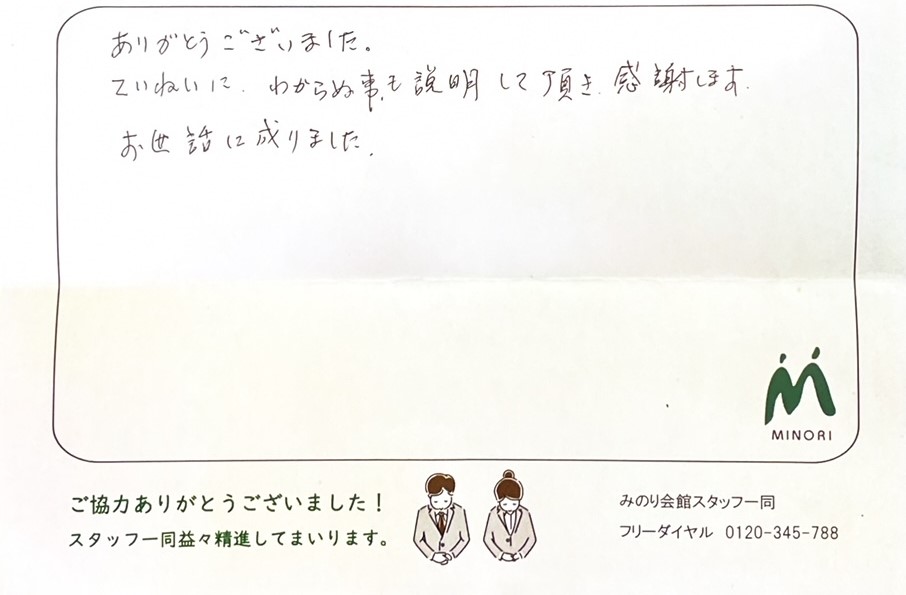 ありがとうございました。
ていねいに、わからぬ事も説明して頂き、感謝します。
お世話に成りました。
MINORI
ご協力ありがとうございました！
スタッフ一同益々精進してまいります。
みのり会館スタッフ一同
フリーダイヤル 0120-345-788